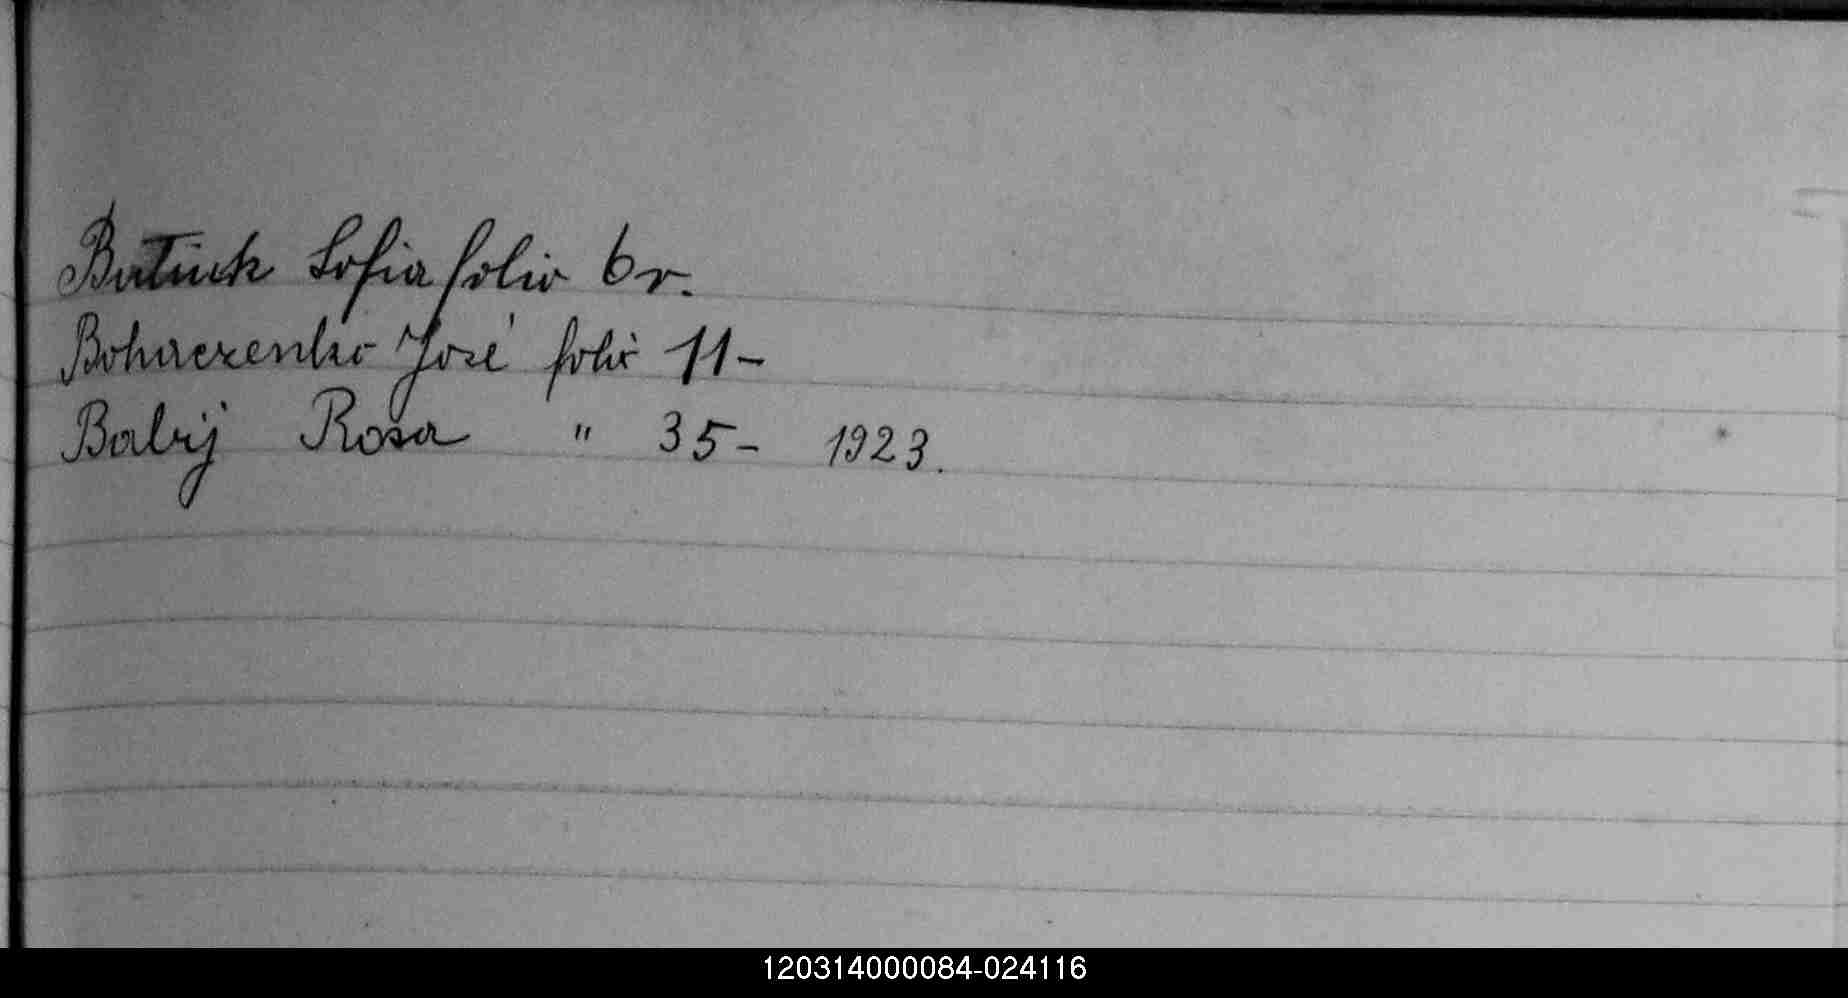 Batiuk Sofia folio 6 v.
Bohaczenko José folio 11-
Babij Rosa " 35- 1923.
120314000084-024116